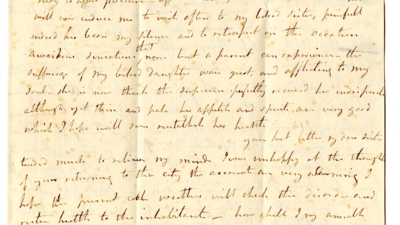 will ever induce me to wait often to my beloved sister, painfull
indeed has been my silence and to retrospect on the occasion
awakens sensations that none but a parent can experience the
sufferings of my beloved daughter were great, and afflicting to my
soul she is now thank the supreme perfectly recovered her indisposition
although yet thin and pale her appetite and spirits are very good
which I hope will soon reestablish her health.
your last letter my dear sister
tended much to relieve my mind I was unhappy at the thought
of your returning to the city, the accounts are very alarming I
hope the present cold weather will check the disorder and
restore health to the inhabitants – how shall I my amiable